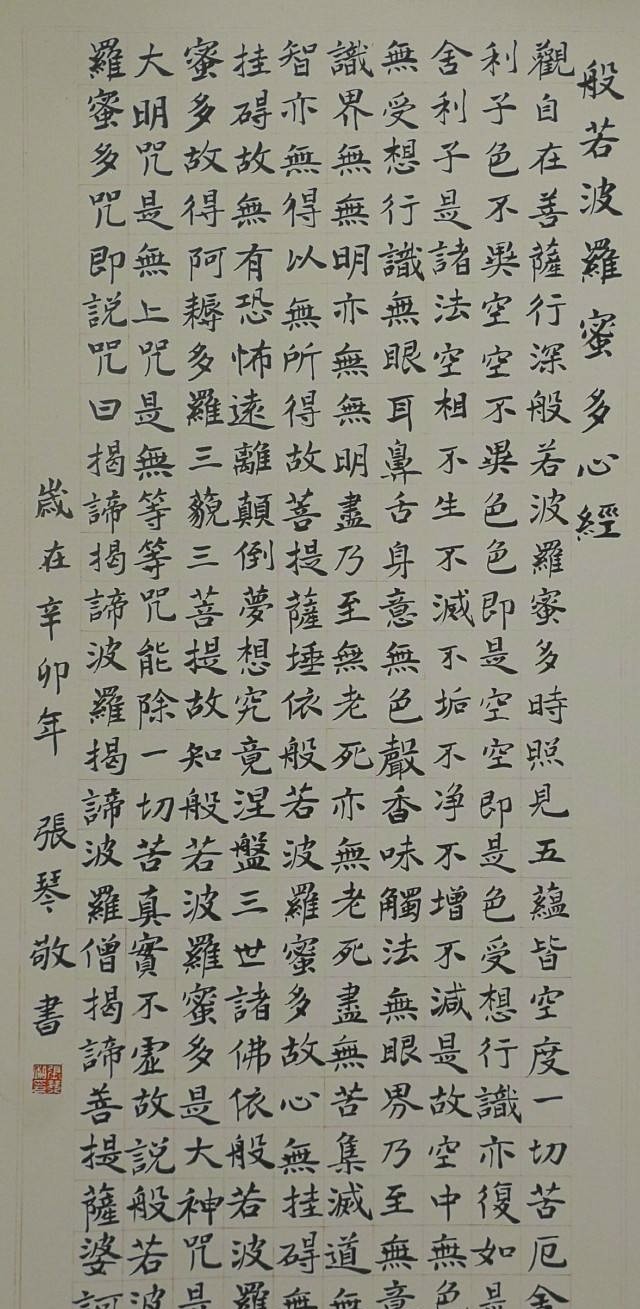 般若波羅蜜多心經
觀自在善薩行深般若波羅蜜多時照見五蘊皆空度一切苦厄舍
利子色不異空空不異色色即是空空即是色受想行識亦復如是
舍利子是諸法空相不生不滅不垢不净不增不減是故空中無色
無受想行識無眼耳鼻舌身意無色聲香味觸法無眼界乃至無意
識界無無明亦無無明盡乃至無老死亦無老死盡無苦集滅道無
智亦無得以無所得故菩提薩埵依般若波羅蜜多故心無挂碍無
挂碍故無有恐怖遠離顛倒夢想究竟涅盤三世諸佛依般若波羅
蜜多故得阿耨多羅三藐三菩提故知般若波羅蜜多是大神咒是
大明咒是無上咒是無等等咒能除一切苦真實不虛故説般若波
羅蜜多咒即説咒曰揭諦揭諦波羅揭諦波羅僧揭諦善提薩婆訶
歲在辛卯年 張琴敬書